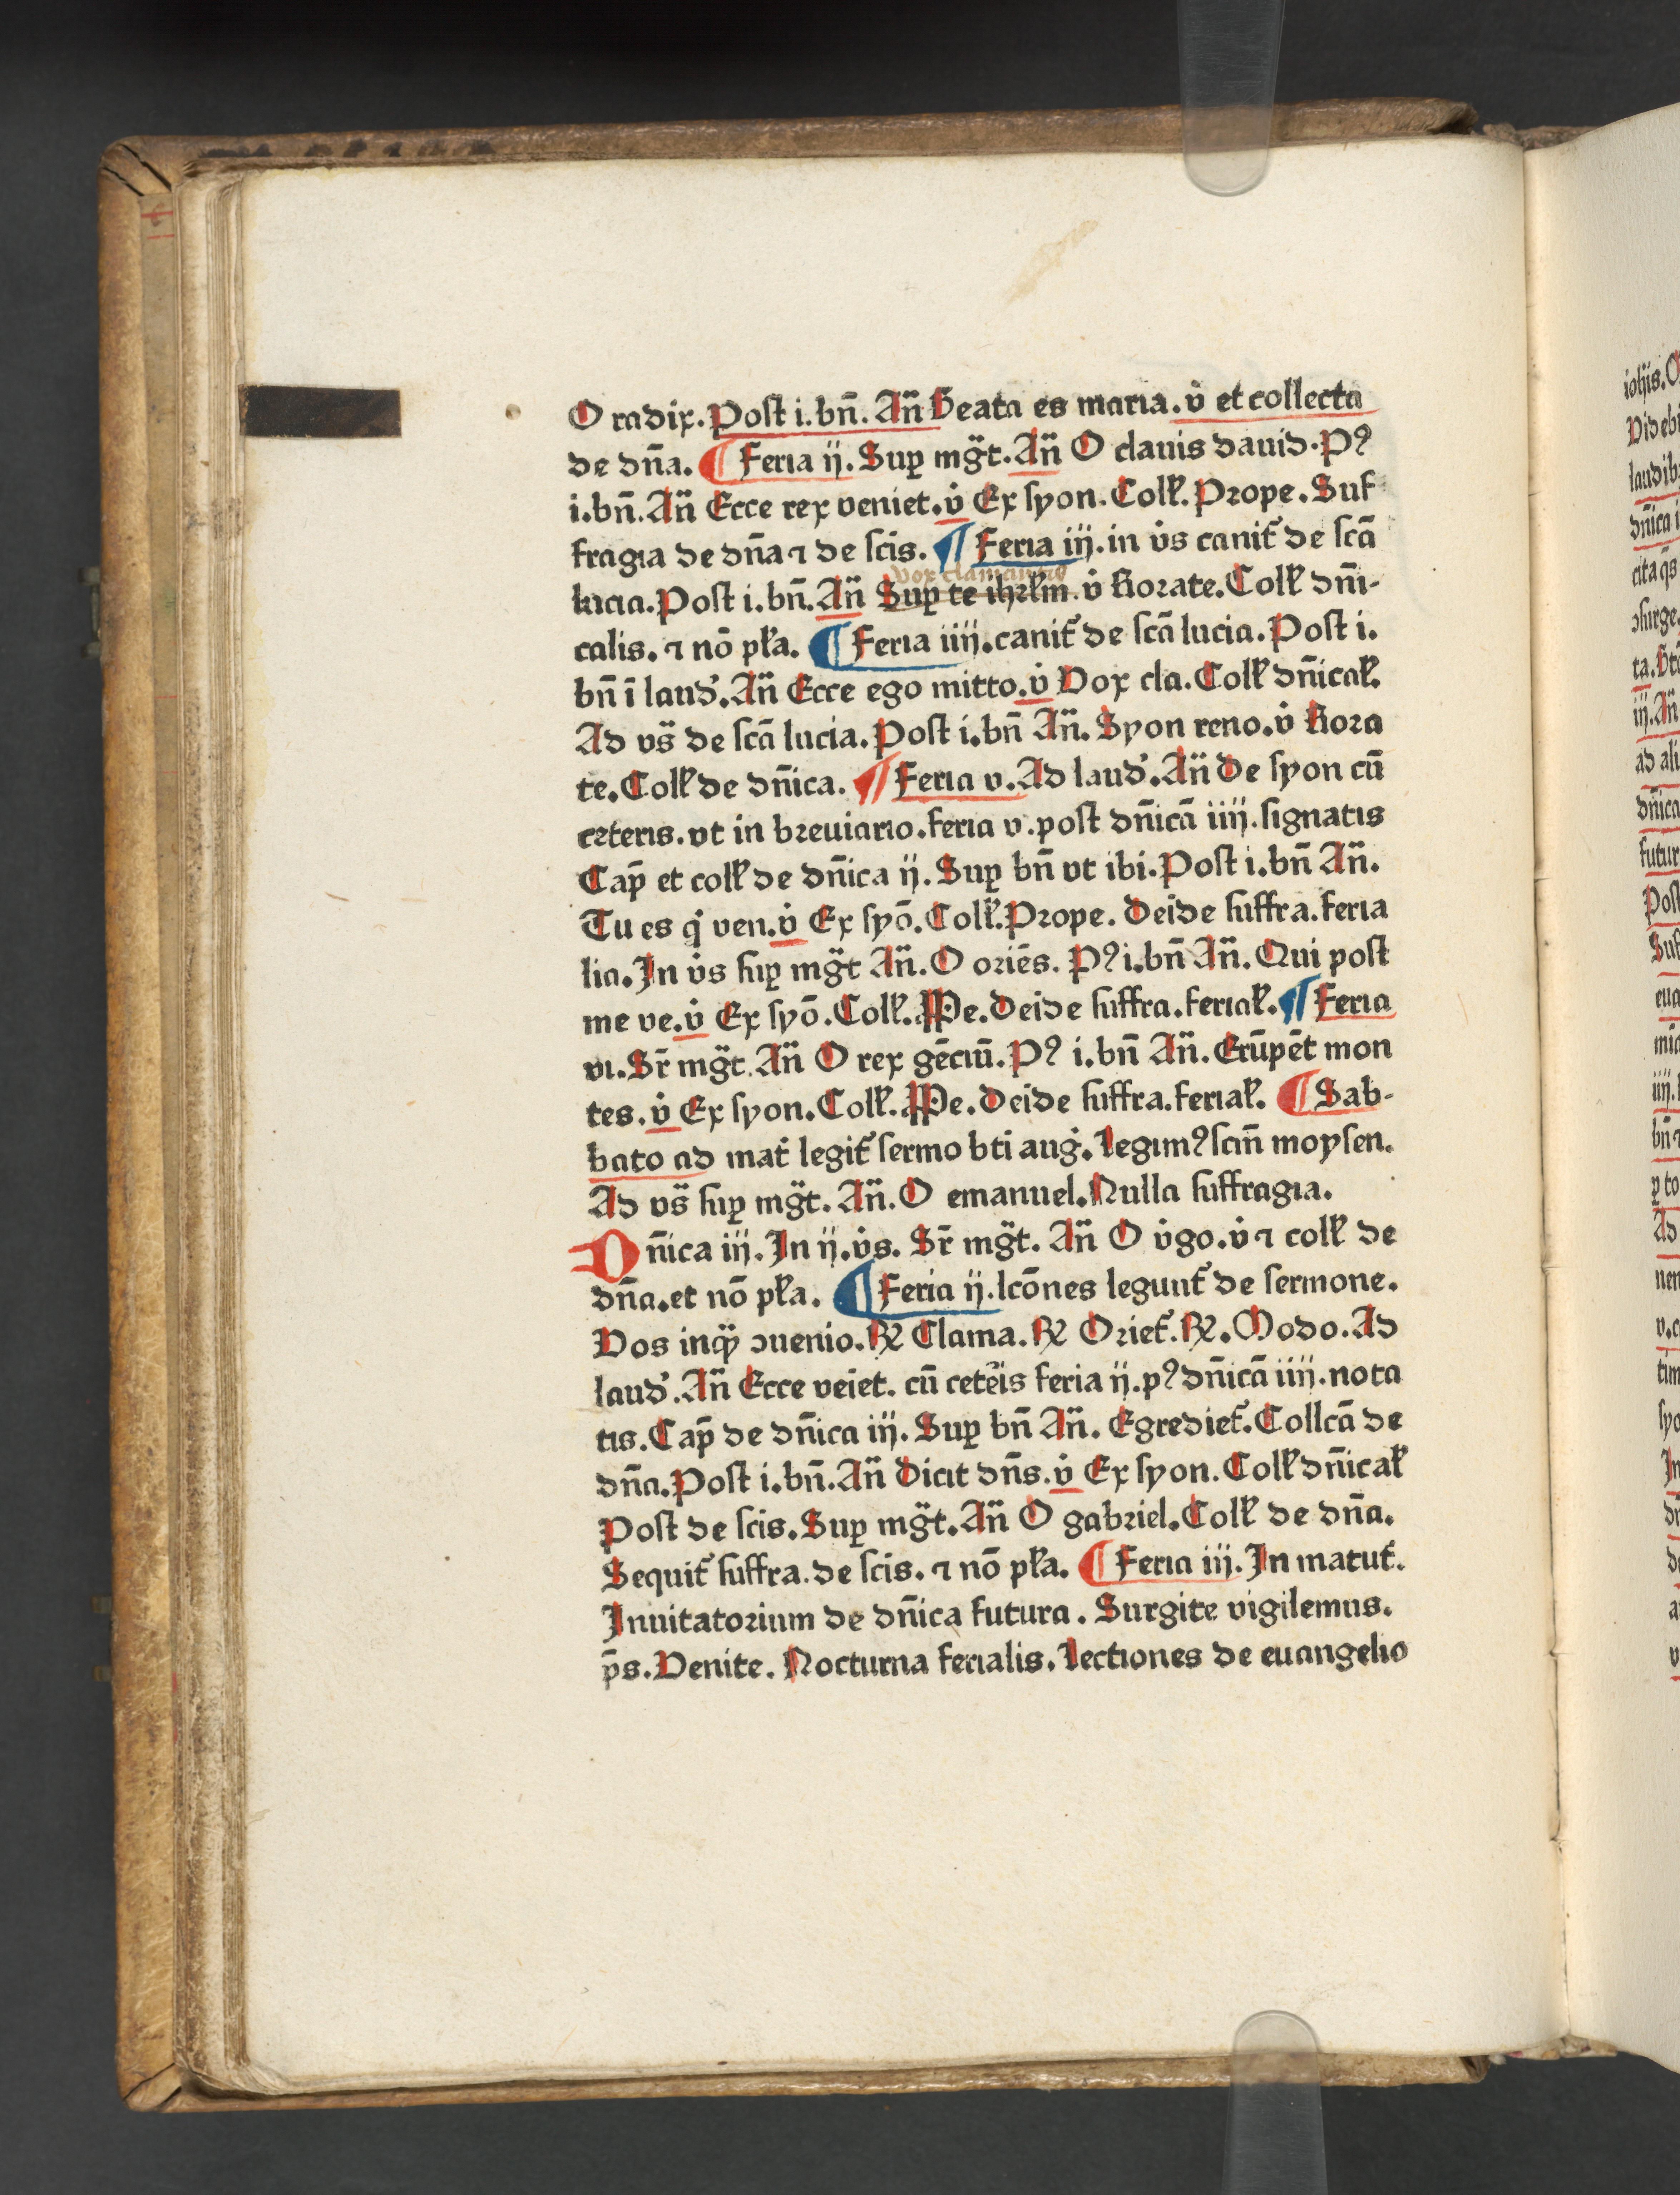 O radix. Post i. bn̄. An̄ Beata es maria. v̇ et collecta
de dn̄a. ¶ Feria ij. Sup̱ mg̅t. An̄ O clauis dauid. Pꝰ
i. bn̄. An̄ Ecce rex veniet. v̇ Ex syon. Coll̓. Prope. Suf
fragia de dn̄a ⁊ de scis. ¶ Feria iij. in v̇s canit᷑ de scā
lucia. Post i. bn̄. An̄ Sup̱ te ihrl̓m. v̇ Rorate. Coll̓ dn̄i-
vox clamantis
calis. ⁊ nō pl̓a. ¶ Feria iiij. canit᷑ de scā lucia. Post i.
bn̄ ī laud᷑. An̄ Ecce ego mitto. v̇ Vox cla. Coll̓ dn̄ical̓.
Ad vs̄ de scā lucia. Post i. bn̄ An̄. Syon reno. v̇ Rora
te. Coll̓ de dn̄ica. ¶ Feria v. Ad laud᷑. An̄ De syon cū
ceteris. vt in breuiario. feria v. post dn̄icā iiij. signatis
Cap̄ et coll̓ de dn̄ica ij. Sup̱ bn̄ vt ibi. Post i. bn̄ An̄.
Tu es q̇ ven. v̇ Ex syō. Coll̓. Prope. Deīde suffra. feria
lia. In v̇s sup̱ mg̅t An̄. O oriēs. Pꝰ i. bn̄ An̄. Qui post
me ve. v̇ Ex syō. Coll̓. Ꝓpe. Deīde suffra. ferial̓. ¶ Feria
vi. Sr̄ mg̅t. An̄ O rex gēciū. Pꝰ i. bn̄ An̄. Erūpēt mon
tes. v̇ Ex syon. Coll̓. Ꝓpe. Deīde suffra. ferial̓. ¶ Sab-
bato ad mat᷑ legit᷑ sermo bti aug᷑. Legimꝰ scm̄ moysen.
Ad vs̄ sup̱ mg̅t. An̄. O emanuel. Nulla suffragia.
Dn̄ica iij. In ij. v̇s. Sr̄ mg̅t. An̄ O v̇go. v̇ ⁊ coll̓ de
dn̄a. et nō pl̓a. ¶ Feria ij. lcōnes legunt᷑ de sermone.
Vos inqͣ̄ ↄuenio. ꝶ Clama. ꝶ Oriet᷑. ꝶ. Modo. Ad
laud᷑. An̄ Ecce veiet. cū ceteīs feria ij. pꝰ dn̄icā iiij. nota
tis. Cap̄ de dn̄ica iij. Sup̱ bn̄ An̄. Egrediet᷑. Collcā de
dn̄a. Post i. bn̄. An̄ Dicit dn̄s. v̇ Ex syon. Coll̓ dn̄ical̓
Post de scis. Sup̱ mg̅t. An̄ O gabriel. Coll̓ de dn̄a.
Sequit᷑ suffra. de scis. ⁊ nō pl̓a. ¶ Feria iij. In matut᷑.
Inuitatorium de dn̄ica futura. Surgite vigilemus.
p̄s. Venite. Nocturna ferialis. Lectiones de euangelio